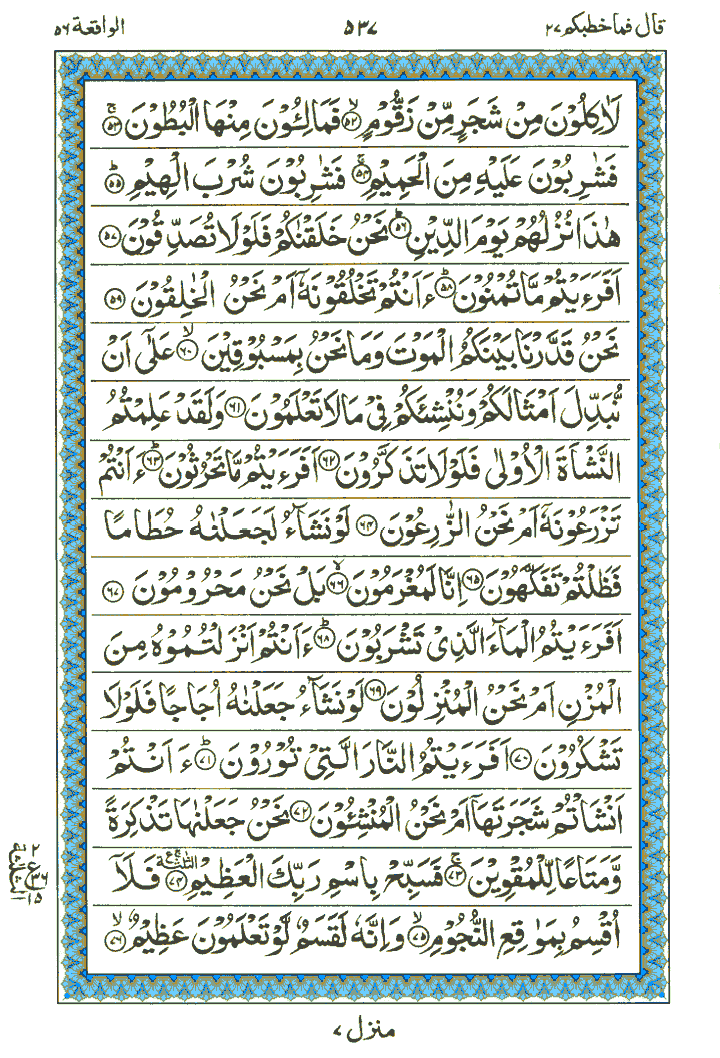 قال فما خطبكم ٢٧ ٥٣٧ الواقعة ٥٦
لَاٰكِلُوْنَ مِنْ شَجَرٍ مِّنْ زَقُّوْمٍۙ‏﴿۵۲﴾ فَمَالِــُٔوْنَ مِنْهَا الْبُطُوْنَۚ‏﴿۵۳﴾
فَشٰرِبُوْنَ عَلَيْهِ مِنَ الْحَمِيْمِۚ‏﴿۵۴﴾ فَشٰرِبُوْنَ شُرْبَ الْهِيْمِؕ‏﴿۵۵﴾
هٰذَا نُزُلُهُمْ يَوْمَ الدِّيْنِؕ‏﴿۵۶﴾ نَحْنُ خَلَقْنٰكُمْ فَلَوْلَا تُصَدِّقُوْنَ‏﴿۵۷﴾
اَفَرَءَيْتُمْ مَّا تُمْنُوْنَؕ‏﴿۵۸﴾ ءَاَنْتُمْ تَخْلُقُوْنَهٗۤ اَمْ نَحْنُ الْخٰلِقُوْنَ‏﴿۵۹﴾
نَحْنُ قَدَّرْنَا بَيْنَكُمُ الْمَوْتَ وَمَا نَحْنُ بِمَسْبُوْقِيْنَۙ‏﴿۶۰﴾ عَلٰٓى اَنْ
نُّبَدِّلَ اَمْثَالَكُمْ وَنُنْشِئَكُمْ فِىْ مَا لَا تَعْلَمُوْنَ‏﴿۶۱﴾ وَلَقَدْ عَلِمْتُمُ
النَّشْاَةَ الْاُوْلٰى فَلَوْلَا تَذَكَّرُوْنَ‏﴿۶۲﴾ اَفَرَءَيْتُمْ مَّا تَحْرُثُوْنَؕ‏﴿۶۳﴾ ءَاَنْتُمْ
تَزْرَعُوْنَهٗۤ اَمْ نَحْنُ الزّٰرِعُوْنَ‏﴿۶۴﴾ لَوْ نَشَآءُ لَجَعَلْنٰهُ حُطَامًا
فَظَلْتُمْ تَفَكَّهُوْنَ‏﴿۶۵﴾ اِنَّا لَمُغْرَمُوْنَۙ‏﴿۶۶﴾ بَلْ نَحْنُ مَحْرُوْمُوْنَ‏﴿۶۷﴾
اَفَرَءَيْتُمُ الْمَآءَ الَّذِىْ تَشْرَبُوْنَؕ‏﴿۶۸﴾ ءَاَنْتُمْ اَنْزَلْتُمُوْهُ مِنَ
الْمُزْنِ اَمْ نَحْنُ الْمُنْزِلُوْنَ‏﴿۶۹﴾ لَوْ نَشَآءُ جَعَلْنٰهُ اُجَاجًا فَلَوْلَا
تَشْكُرُوْنَ‏﴿۷۰﴾ اَفَرَءَيْتُمُ النَّارَ الَّتِىْ تُوْرُوْنَؕ‏﴿۷۱﴾ ءَاَنْتُمْ
اَنْشَاْتُمْ شَجَرَتَهَاۤ اَمْ نَحْنُ الْمُنْشِــُٔوْنَ‏﴿۷۲﴾ نَحْنُ جَعَلْنٰهَا تَذْكِرَةً
وَّمَتَاعًا لِّلْمُقْوِيْنَۚ‏﴿۷۳﴾ فَسَبِّحْ بِاسْمِ رَبِّكَ الْعَظِيْمِ‏﴿۷۴﴾ فَلَاۤ
اُقْسِمُ بِمَوٰقِعِ النُّجُوْمِۙ‏﴿۷۵﴾ وَاِنَّهٗ لَقَسَمٌ لَّوْ تَعْلَمُوْنَ عَظِيْمٌۙ‏﴿۷۶﴾
٢
ع
٣٦
١٥
منزل ٧